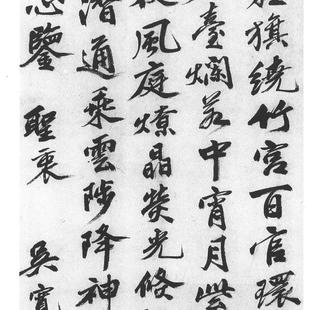 旗繞竹宮百官環
臺爛若中宵月紫
風庭燎晶熒光倏
潛通乘雲陟降神
鑒 聖衷 吳寬